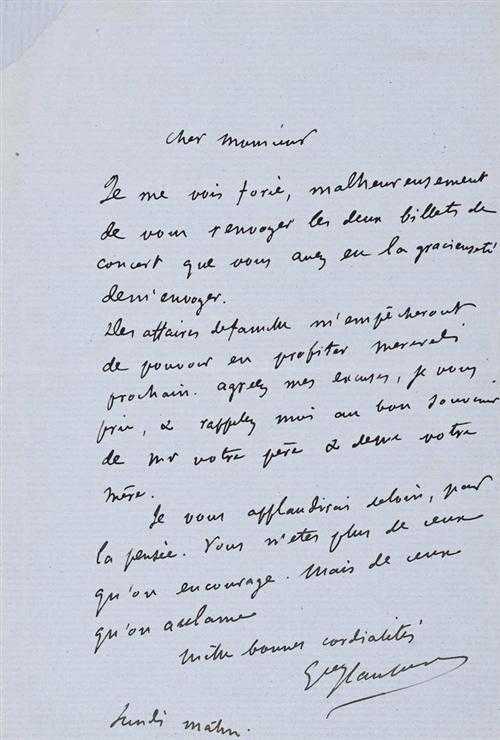 cher monsieur
Je me vois forcé, malheureusement
de vous renvoyer les deux billets de
concert que vous avez eu la gracieuseté
de m'envoyer.
Des affaires de famille m'empêcheront
de pouvoir en profiter mercredi
prochain. agréez mes excuses, je vous
prie, & rappelez moi au bon souvenir
de Mr votre père & de votre
mère.
Je vous applaudirai de loin, par
la pensée. Vous n'etes plus de ceux
qu'on encourage. Mais de ceux
qu'on acclame
Mille bonnes cordialités
Lundi matin.